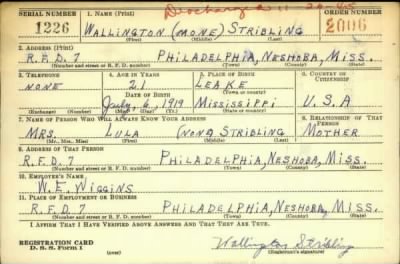 Discharged 11-20-45
SERIAL NUMBER 1. NAME (Print) ORDER NUMBER
1226 WALLINGTON (NONE) STRIBLING 2006
(First) (Middle) (Last)
2. ADDRESS (Print)
R.F.D. 7 PHILADELPHIA, NESHOBA, MISS.
(Number and street or R. F. D. number) (Town) (County) (State)
3. TELEPHONE 4. AGE IN YEARS 5. PLACE OF BIRTH 6. COUNTRY OF CITIZENSHIP
NONE 21 LEAKE
DATE OF BIRTH (Town or county)
July 6, 1919 MISSISSIPPI U.S.A
(Exchange) (Number) (Mo.) (Day) (Yr.) (State or country)
7. NAME OF PERSON WHO WILL ALWAYS KNOW YOUR ADDRESS 8. RELATIONSHIP OF THAT PERSON
MRS. LULA (NONE) STRIBLING MOTHER
(Mr., Mrs., Miss) (First) (Middle) (Last)
9. ADDRESS OF THAT PERSON
R.F.D. 7 PHILADELPHIA, NESHOBA, MISS.
(Number and street or R. F. D. number) (Town) (County) (State)
10. EMPLOYER'S NAME
W.E. WIGGINS
11. PLACE OF EMPLOYMENT OR BUSINESS
R.F.D. 7 PHILADELPHIA, NESHOBA, MISS.
(Number and street or R. F. D. number) (Town) (County) (State)
I AFFIRM THAT I HAVE VERIFIED ABOVE ANSWERS AND THAT THEY ARE TRUE.
REGISTRATION CARD Wallington Stribling
D. S. S. Form 1 (Registrant's signature)